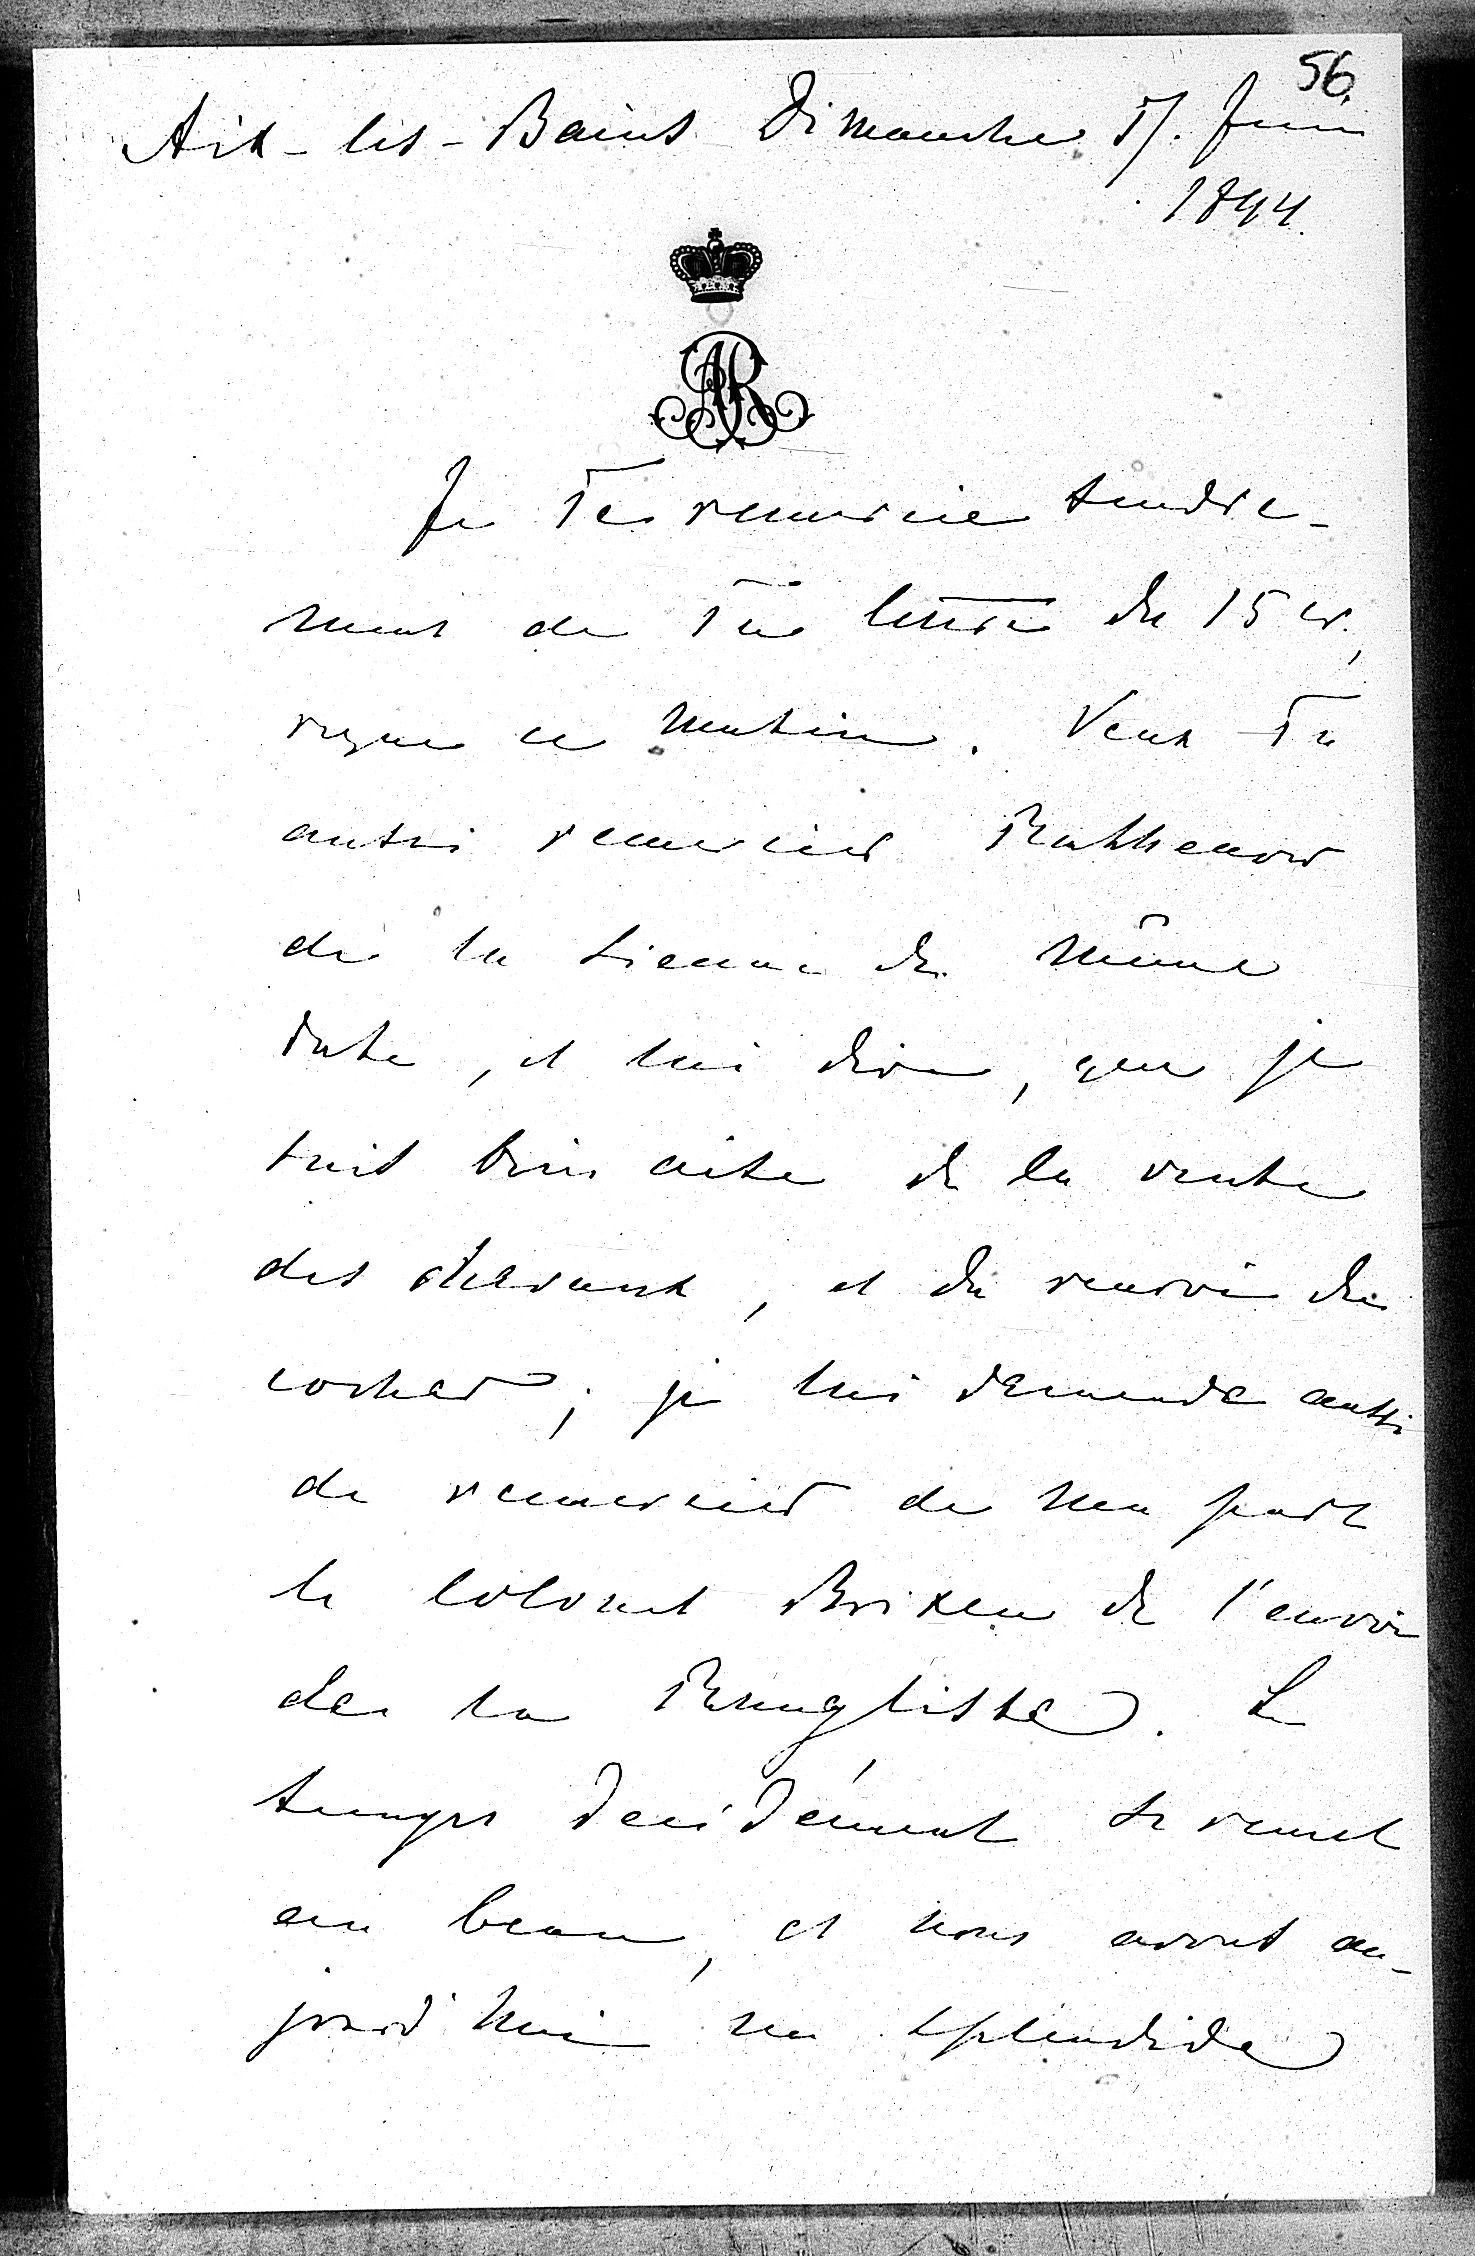 56.
Aix-les-Bains Dimanche 17. Juin
1894.
AR
Je Te remercie tendre-
ment de Ta lettre du 15 cr.,
reçue ce matin. Veux Tu
aussi remercier Rathenow
de la sienne du même
date, et lui dire, que je
suis bien aise de la vente
des chevaux, et du renvoi du
cocher; je lui demande aussi
de remercier de ma part
le Colonel Brixen de l'envoi
de la Rangliste. Le
temps décidément se remet
au beau, et nous avons au-
jourd'hui un splendide